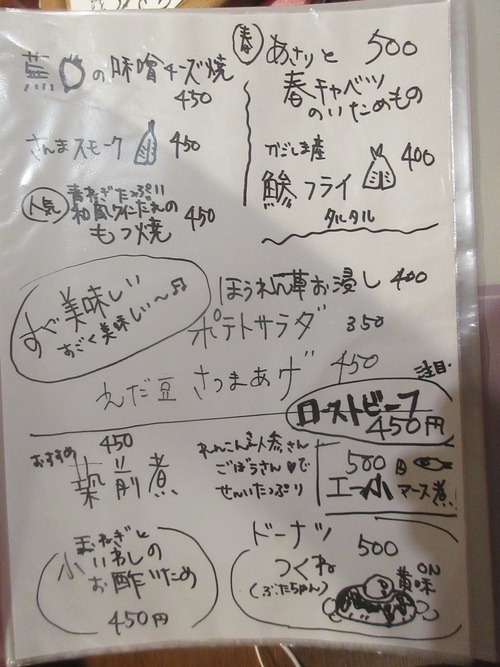 蕪の味噌チーズ焼
450
さんまスモーク 450
人気
青ねぎたっぷり
和風ワインだれの
もつ焼 450
春
あさりと 500
春キャベツ
のいためもの
かごしま産
鯵フライ 400
タルタル
すべ美味しい
すごく美味しい〜♫
ほうれん草お浸し 400
ポテトサラダ 350
えだ豆 さつまあげ 450
注目
ローストビーフ
450円
おすすめ 450
築前煮
れんこん人参さん
ごぼうさん♥で
せんいたっぷり
500円
マース煮
玉ねぎと
小いわしの
お酢いため
450円
ドーナツ
つくね 500
(ぶたちゃん)
黄味ON